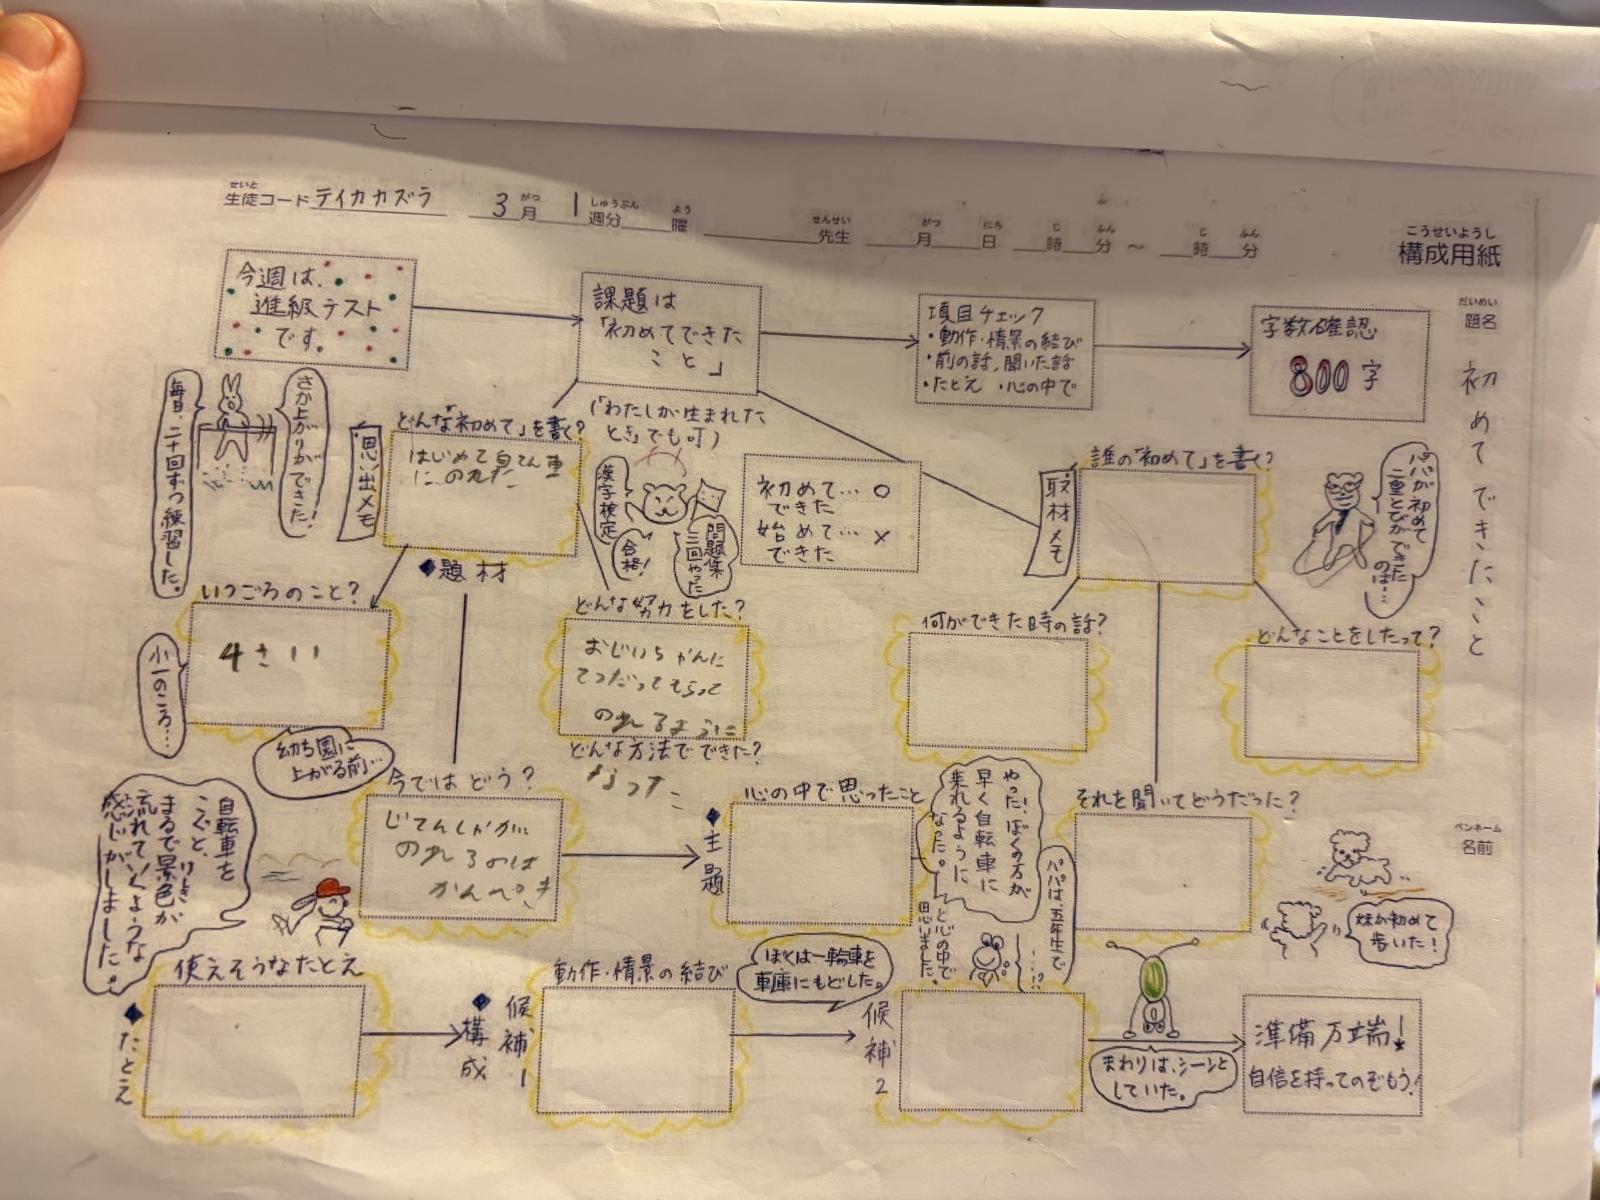 せいと
生徒コード テイカカズラ 3月 1週分 曜 先生 月 日 時 分 ～ 時 分
がつ しゅうぶん よう せんせい がつ にち じ ふん じ ふん
こうせいようし
構成用紙
だいめい
題名
初めてできたこと
ペンネーム
名前
今週は、
進級テスト
です。
課題は
「初めてできた
こと」
(「わたしが生まれた
とき」でも可)
項目チェック
・動作・情景の結び
・前の話、聞いた話
・たとえ ・心の中で
字数確認
800字
毎日、二十回ずつ練習した。
さか上がりができた!
思い出メモ
どんな「初めて」を書く?
はじめて自てん車
にのれた
漢字検定
合格!
問題集
三回やった
初めて…○
できた
始めて…×
できた
取材メモ
誰の「初めて」を書く?
パパが初めて
二重とびができた
のは…
◆題材
いつごろのこと?
4さい
小一のころ…
幼ち園に
上がる前…
どんな努力をした?
おじいちゃんに
てつだってもらって
のれるように
どんな方法でできた?
なった
何ができた時の話?
どんなことをしたって?
今ではどう?
じてんしゃが
のれるのは
かんぺき
自転車を
こぐと、
まるで景色が
けしき
流れていくような
感じがしました。
◆主題
心の中で思ったこと
やった!ぼくの方が
早く自転車に
乗れるように
なった。
と心の中で
思いました。
パパは、五年生で
…!?
それを聞いてどうだった?
妹が初めて
歩いた!
◆たとえ
使えそうなたとえ
◆構成
候補1
動作・情景の結び
ぼくは一輪車を
車庫にもどした。
候補2
まわりは、シーンと
していた。
準備万端!
自信を持ってのぞもう!